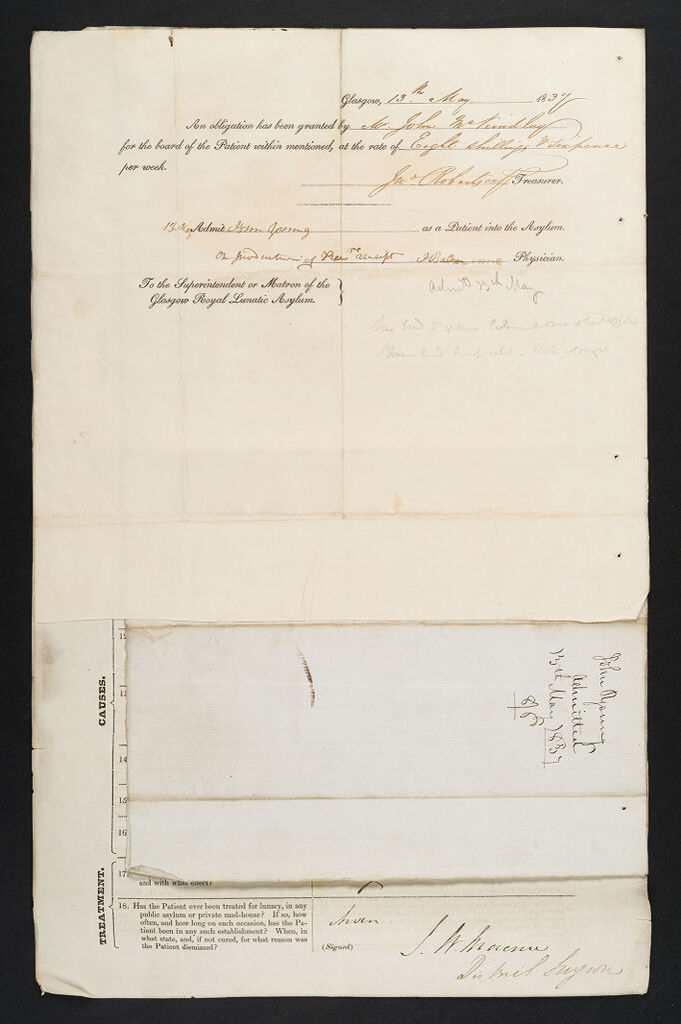 Glasgow, 13th May 1837
An obligation has been granted by Mr. John McKindlay
for the board of the Patient within mentioned, at the rate of Eight shillings & sixpence
per week.
Jno Robertson Treasurer.
13 May Admit John Young as a Patient into the Asylum.
On production of Trea.res receipt Physician.
To the Superintendent or Matron of the
Glasgow Royal Lunatic Asylum. }
Admd 13th May
John Young
Admitted
13th May 1837
8/6
CAUSES.
13
14
15
16
TREATMENT.
17.
and with what effect?
18. Has the Patient ever been treated for lunacy, in any
public asylum or private mad-house? If so, how
often, and how long on each occasion, has the Pa-
tient been in any such establishment? When, in
what state, and, if not cured, for what reason was
the Patient dismissed?
Never
(Signed)
District Surgeon